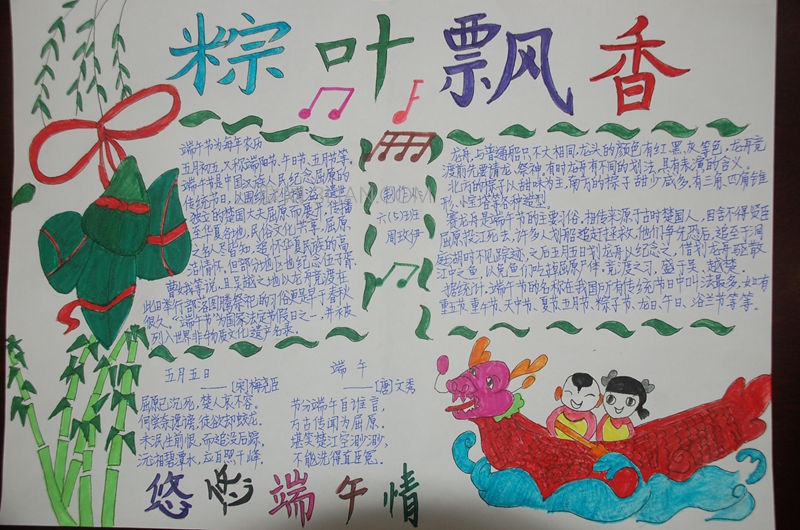 粽叶飘香
端午节为每年农历
五月初五,又称端阳节、午日节、五月节等。
端午节是中国汉族人民纪念屈原的
传统节日,以围绕
独立的楚国大夫屈原而展开,传播
至华夏各地,民俗文化共享,屈原
之名人尽皆知,追怀华夏民族的高
洁情怀。但部分地区也纪念伍子胥、
曹娥等说,且吴越之地以龙舟竞渡在
此日举行部落图腾祭祀的习俗更是早于春秋
很久。“端午节”为国家法定节假日之一,并被
列入世界非物质文化遗产名录。
制作小
六(5)班
周玟伊
龙舟与普通船只不大相同,龙头的颜色有红、黑、灰等色,龙舟竞
渡前先要请龙、祭神。有时龙舟有不同的划法,具有表演的含义。
北方的粽子以甜味为主,南方的粽子甜少咸多,有三角、四角锥
形、小宝塔等各种造型。
赛龙舟是端午节的主要习俗。相传来源于古时楚国人,因舍不得贤臣
屈原投江死去,许多人划船追赶拯救。他们争先恐后,追至于洞
庭湖时不见踪迹。之后五月五日划龙舟以纪念之,借划龙舟驱散
江中之鱼,以免鱼们吃掉屈原尸体。竞渡之习,盛于吴、越、楚。
据统计,端午节的名称在我国所有传统节日中叫法最多,如:有
重五节、重午节、天中节、夏节、五月节、粽子节、龙日、午日、浴兰节等等。
五月五日
——[宋]梅尧臣
屈原已沉死,楚人哀不容。
何尝奈谗谤,徒欲却蛟龙。
未泯生前恨,而追没后踪。
沅湘碧潭水,应自照千峰。
端午
——[唐]文秀
节分端午自谁言,
万古传闻为屈原。
堪笑楚江空渺渺,
不能洗得直臣冤。
悠悠端午情